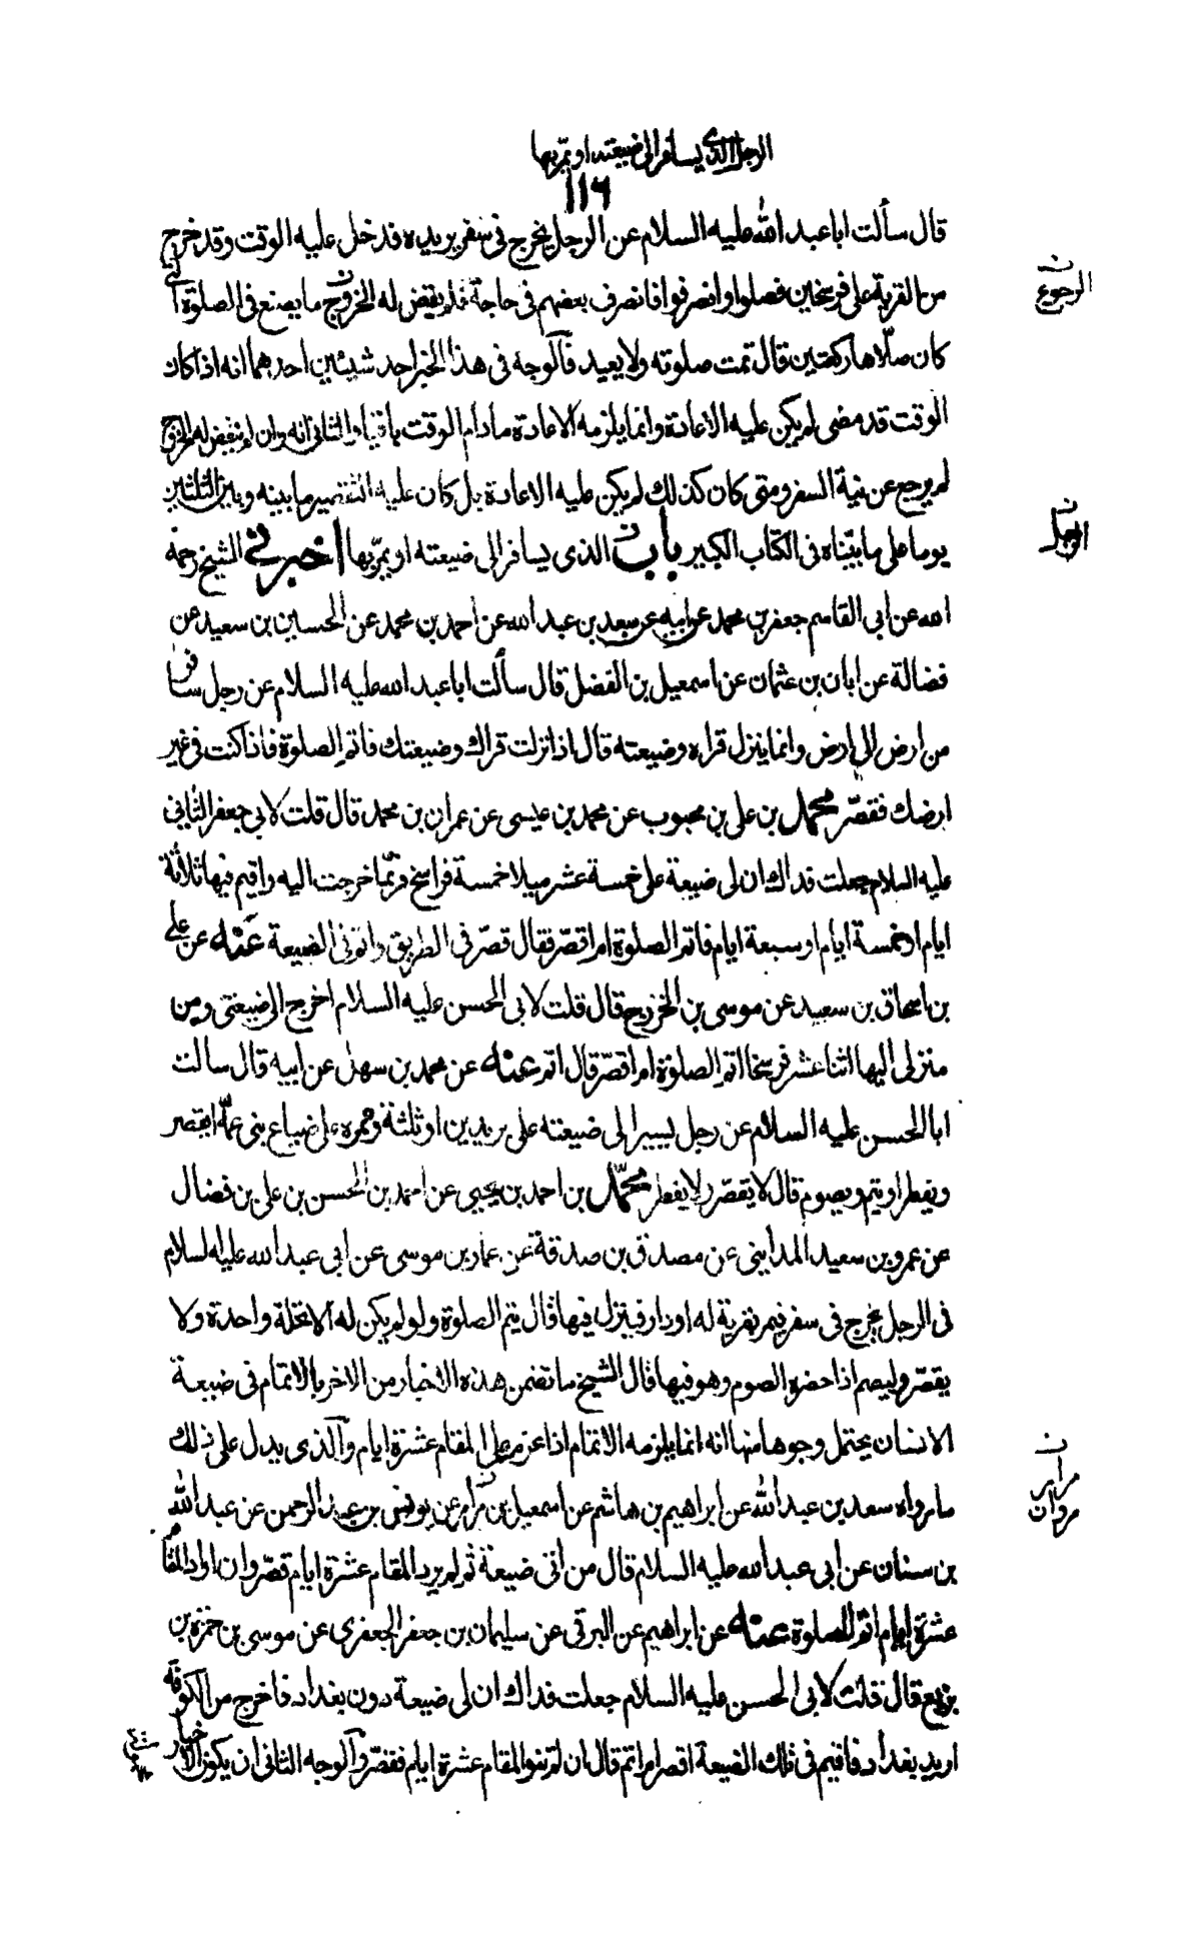 الرجل الذى يسافر الى ضيعته او يمرّ بها
١١٦
قال سألت ابا عبد الله عليه السلام عن الرجل يخرج فى سفر يريده فدخل عليه الوقت وقد خرج
من القرية على فرسخين فصلوا وانصرفوا فانصرف بعضهم فى حاجة فلم يقض له الخروج ما يصنع فى الصلوة التى
كان صلّاها ركعتين قال تمت صلوته ولا يعيد فالوجه فى هذا الخبر احد شيئين احدهما انه اذا كان
الوقت قد مضى لم يكن عليه الاعادة وانما يلزمه الاعادة ما دام الوقت باقيا والثانى انه وان لم يقض له الخروج
لم يرجع عن نية السفر ومتى كان كذلك لم يكن عليه الاعادة بل كان عليه التقصير ما بينه وبين الثلثين
يوما على ما بيّناه فى الكتاب الكبير باب الذى يسافر الى ضيعته او يمرّ بها اخبرنى الشيخ رحمه
الله عن ابى القاسم جعفر بن محمد عن ابيه عن سعد بن عبد الله عن احمد بن محمد عن الحسين بن سعيد عن
فضالة عن ابان بن عثمان عن اسمعيل بن الفضل قال سألت ابا عبد الله عليه السلام عن رجل سافر
من ارض الى ارض وانما ينزل قراه وضيعته قال اذا نزلت قراك وضيعتك فاتم الصلوة فاذا كنت فى غير
ارضك فقصّر محمد بن على بن محبوب عن محمد بن عيسى عن عمران بن محمد قال قلت لابى جعفر الثانى
عليه السلام جعلت فداك ان لى ضيعة على خمسة عشر ميلا خمسة فراسخ فربّما خرجت اليه واقيم فيها ثلاثة
ايام او خمسة ايام او سبعة ايام فاتم الصلوة ام اقصّر فقال قصّر فى الطريق واتم فى الضيعة عنه عن على
بن اسحاق بن سعيد عن موسى بن الخزرج قال قلت لابى الحسن عليه السلام اخرج الى ضيعتى ومن
منزلى اليها اثنا عشر فرسخا اتم الصلوة ام اقصّر قال اتم عنه عن محمد بن سهل عن ابيه قال سالت
ابا الحسن عليه السلام عن رجل يسير الى ضيعته على بريدين او ثلثة وممره على ضياع بنى عمّه ايقصر
ويفطر او يتم ويصوم قال لا يقصّر ولا يفطر محمّد بن احمد بن يحيى عن احمد بن الحسن بن على بن فضال
عن عمرو بن سعيد المداينى عن مصدق بن صدقة عن عمار بن موسى عن ابى عبد الله عليه السلام
فى الرجل يخرج فى سفر فيمر بقرية له او دار فينزل فيها قال يتم الصلوة ولو لم يكن له الا نخلة واحدة ولا
يقصّر وليصم اذا حضره الصوم وهو فيها قال الشيخ ما تضمن هذه الاخبار من الاخر بالاتمام فى ضيعة
الانسان يحتمل وجوها منها انه انما يلزمه الاتمام اذا عزم على المقام عشرة ايام والذى يدل على ذلك
ما رواه سعد بن عبد الله عن ابراهيم بن هاشم عن اسمعيل بن مرام عن يونس بن عبد الرحمن عن عبد الله
بن سنان عن ابى عبد الله عليه السلام قال من اتى ضيعة ثم لم يرد المقام عشرة ايام قصّر وان اراد المقام
عشرة ايام اتم الصلوة عنه عن ابراهيم عن البرقى عن سليمان بن جعفر الجعفرى عن موسى بن حمزة بن
بزيع قال قلت لابى الحسن عليه السلام جعلت فداك ان لى ضيعة دون بغداد فاخرج من الكوفة
اريد بغداد فاقيم فى تلك الضيعة اقصر ام اتم قال ان لم تنو المقام عشرة ايام فقصّر والوجه الثانى ان يكون الاخبار
الرجوع
الرجل
مرار
مروان